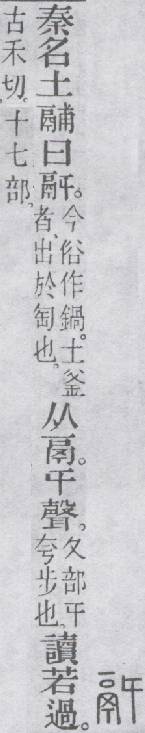 秦名土鬴曰䰛。今俗作鍋。土釜者、出於匋也。从鬲。㐄聲。夂部㐄夸步也。讀若過。
古禾切。十七部。